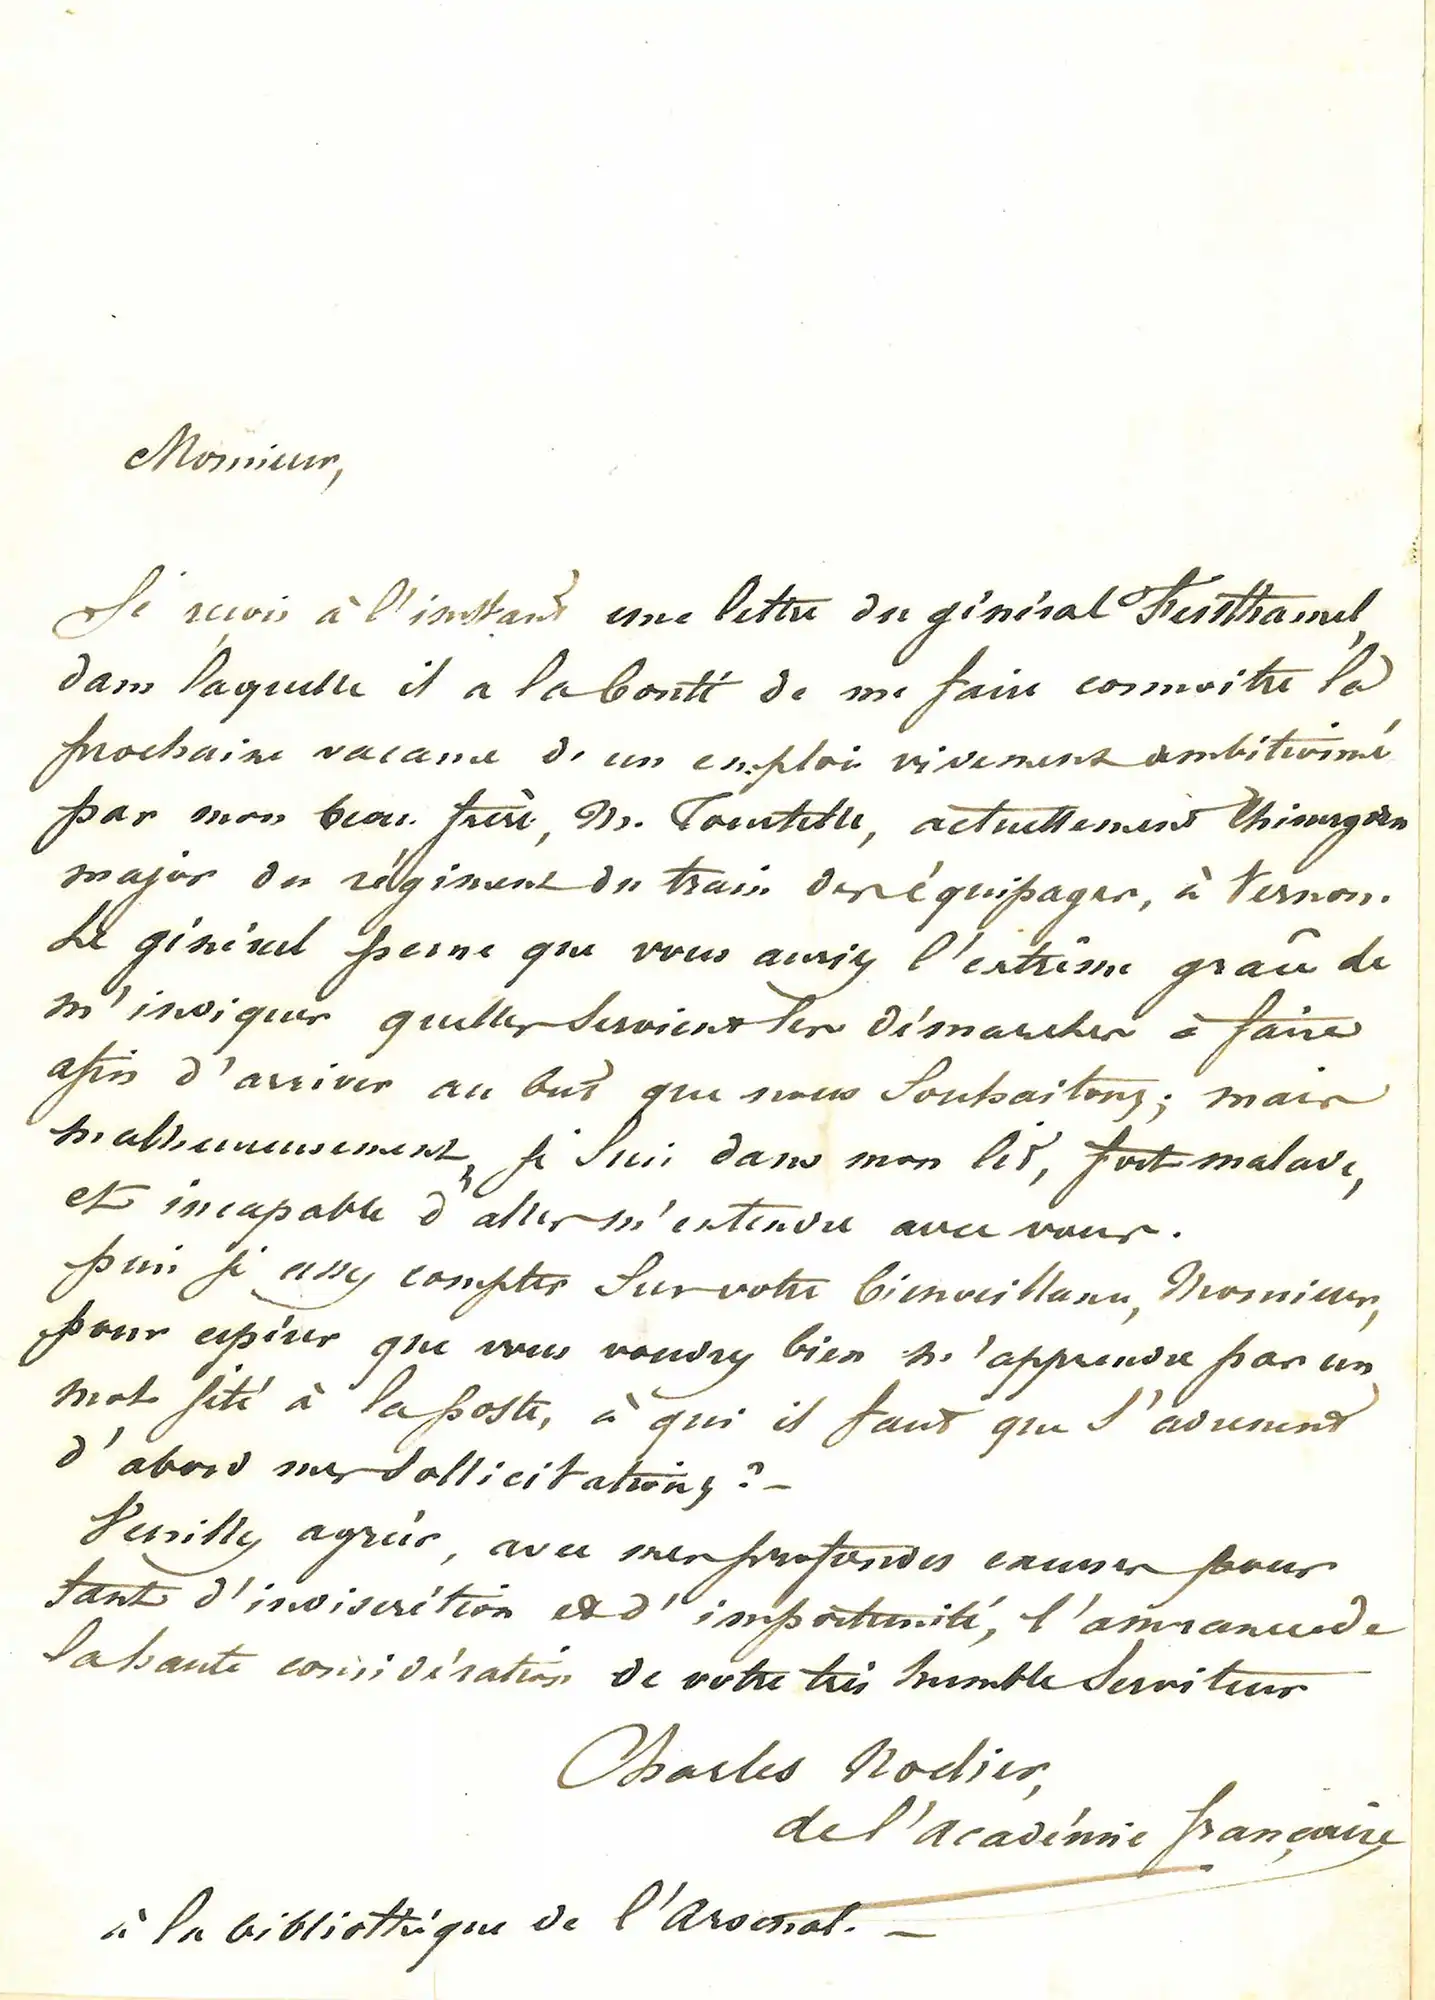 Monsieur,
Je reçois à l'instant une lettre du général Feisthamel,
dans laquelle il a la bonté de me faire connoitre la
prochaine vacance de un emploi vivement ambitionné
par mon beau frère, M. Tourtelle, actuellement Chirurgien
major du régiment du train des équipages, à Vernon.
Le général pense que vous auriez l'extrême grâce de
m'indiquer quelles seroient les démarches à faire
afin d'arriver au but que nous souhaitons; mais
malheureusement, je suis dans mon lit, fort malade,
et incapable d'aller m'entendre avec vous.
puis je assez compter sur votre bienveillance, Monsieur,
pour espérer que vous voudrez bien m'apprendre par un
mot jeté à la poste, à qui il faut que s'adressent
d'abord mes sollicitations? –
Veuillez agréer, avec mes profondes excuses pour
tant d'indiscrétion et d'importunité, l'assurance de
la haute considération de votre très humble serviteur
Charles Nodier,
de l'Académie françoise
à la bibliothèque de l'Arsenal. –